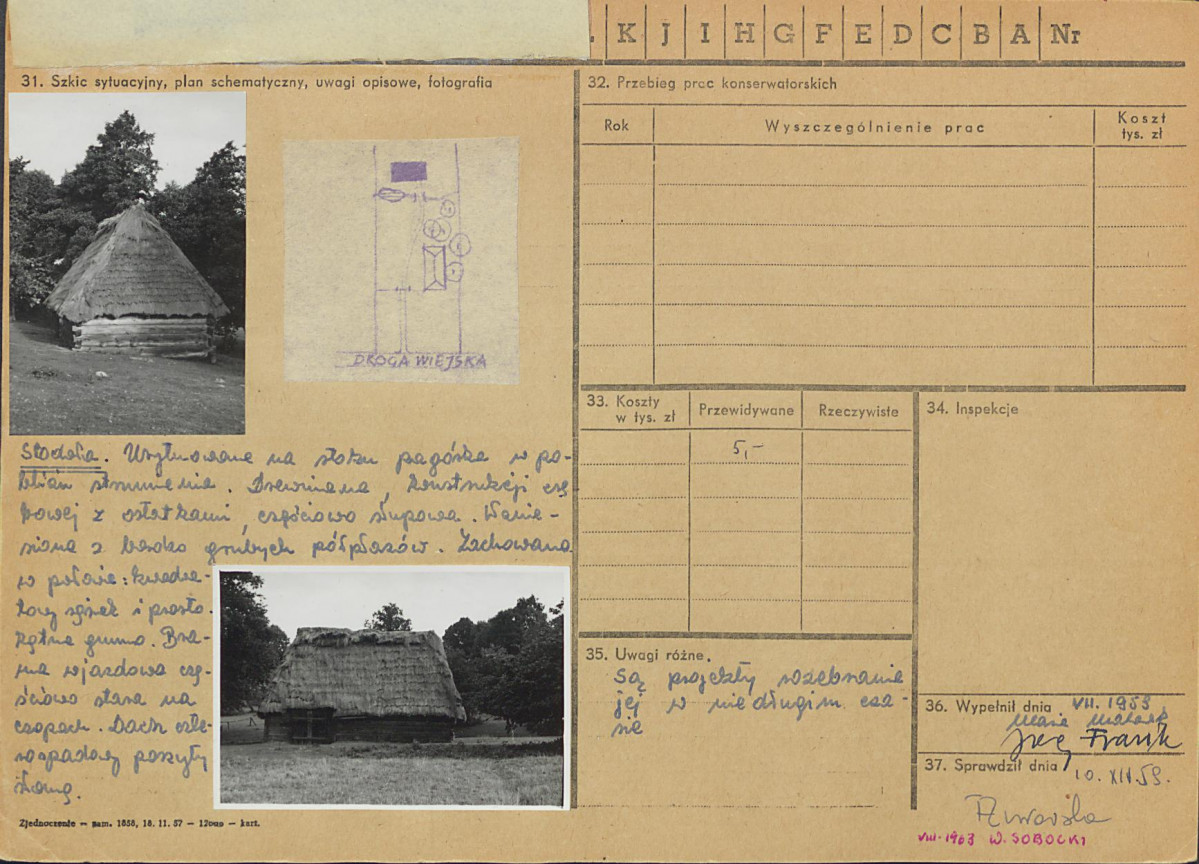 K J I H G F E D C B A Nr
31. Szkic sytuacyjny, plan schematyczny, uwagi opisowe, fotografia
DROGA WIEJSKA
Stodoła. Usytuowana na stoku pagórka w po-
bliżu strumienia. Drewniana, konstrukcji
z ostatkami, częściowo słupowa. Wznie-
siona z bardzo grubych półpłazów. Zachowana
w połowie: kwadra-
towy sąsiek i prosto-
kątne gumno. Bra-
ma wjazdowa czę-
ściowo stara na
czopach. Dach czte-
rospadowy poszyty
słomą.
Zjednoczenie — zam. 1858, 18. 11. 57 — 12000 — kart.
32. Przebieg prac konserwatorskich
Rok Wyszczególnienie prac Koszt tys. zł
33. Koszty w tys. zł Przewidywane Rzeczywiste
5,-
34. Inspekcje
35. Uwagi różne.
Są projekty rozebrania
jej w niedługim cza-
sie
36. Wypełnił dnia VII. 1959
37. Sprawdził dnia 10. XII. 59.
VIII-1963 W. SOBOCKI